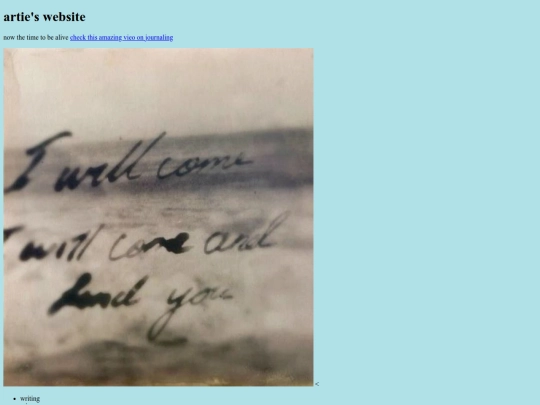 artie's website
now the time to be alive check this amazing vieo on journaling
I will come
I will come and
find you
<
writing